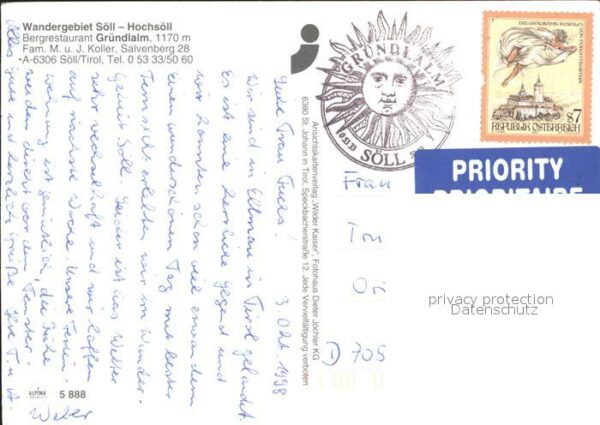 Wandergebiet Söll – Hochsöll
Bergrestaurant Gründlalm, 1170 m
Fam. M. u. J. Koller, Salvenberg 28
A-6306 Söll/Tirol, Tel. 0 53 33/50 60
GRÜNDLALM
SÖLL
VON FORCHTENSTEIN
S7
REPUBLIK ÖSTERREICH
PRIORITY
PRIORITAIRE
3. Okt. 1998
Liebe Frau Fuchs!
Wir sind in Ellmau in Tirol gelandet.
Es ist eine herrliche Gegend und
wir konnten schon viel wandern
Einen wunderschönen Tag mit bester
Fernsicht erlebten wir im Wander-
Gebiet Söll. Leider ist das Wetter
sehr wechselhaft und wir hoffen
auf nächste Woche. Unsere Ferien-
wohnung ist gemütlich, die Kühe
weiden direkt vor dem Fenster.
Alles Gute und herzliche Grüße Ihre T. u. A.
Weber
Ansichtskartenverlag „Wilder Kaiser“, Fotohaus Dieter Jöchler KG
6380 St. Johann in Tirol, Speckbacherstraße 12. Jede Vervielfältigung verboten
Frau
D 705
privacy protection
Datenschutz
ALPINA
5 888